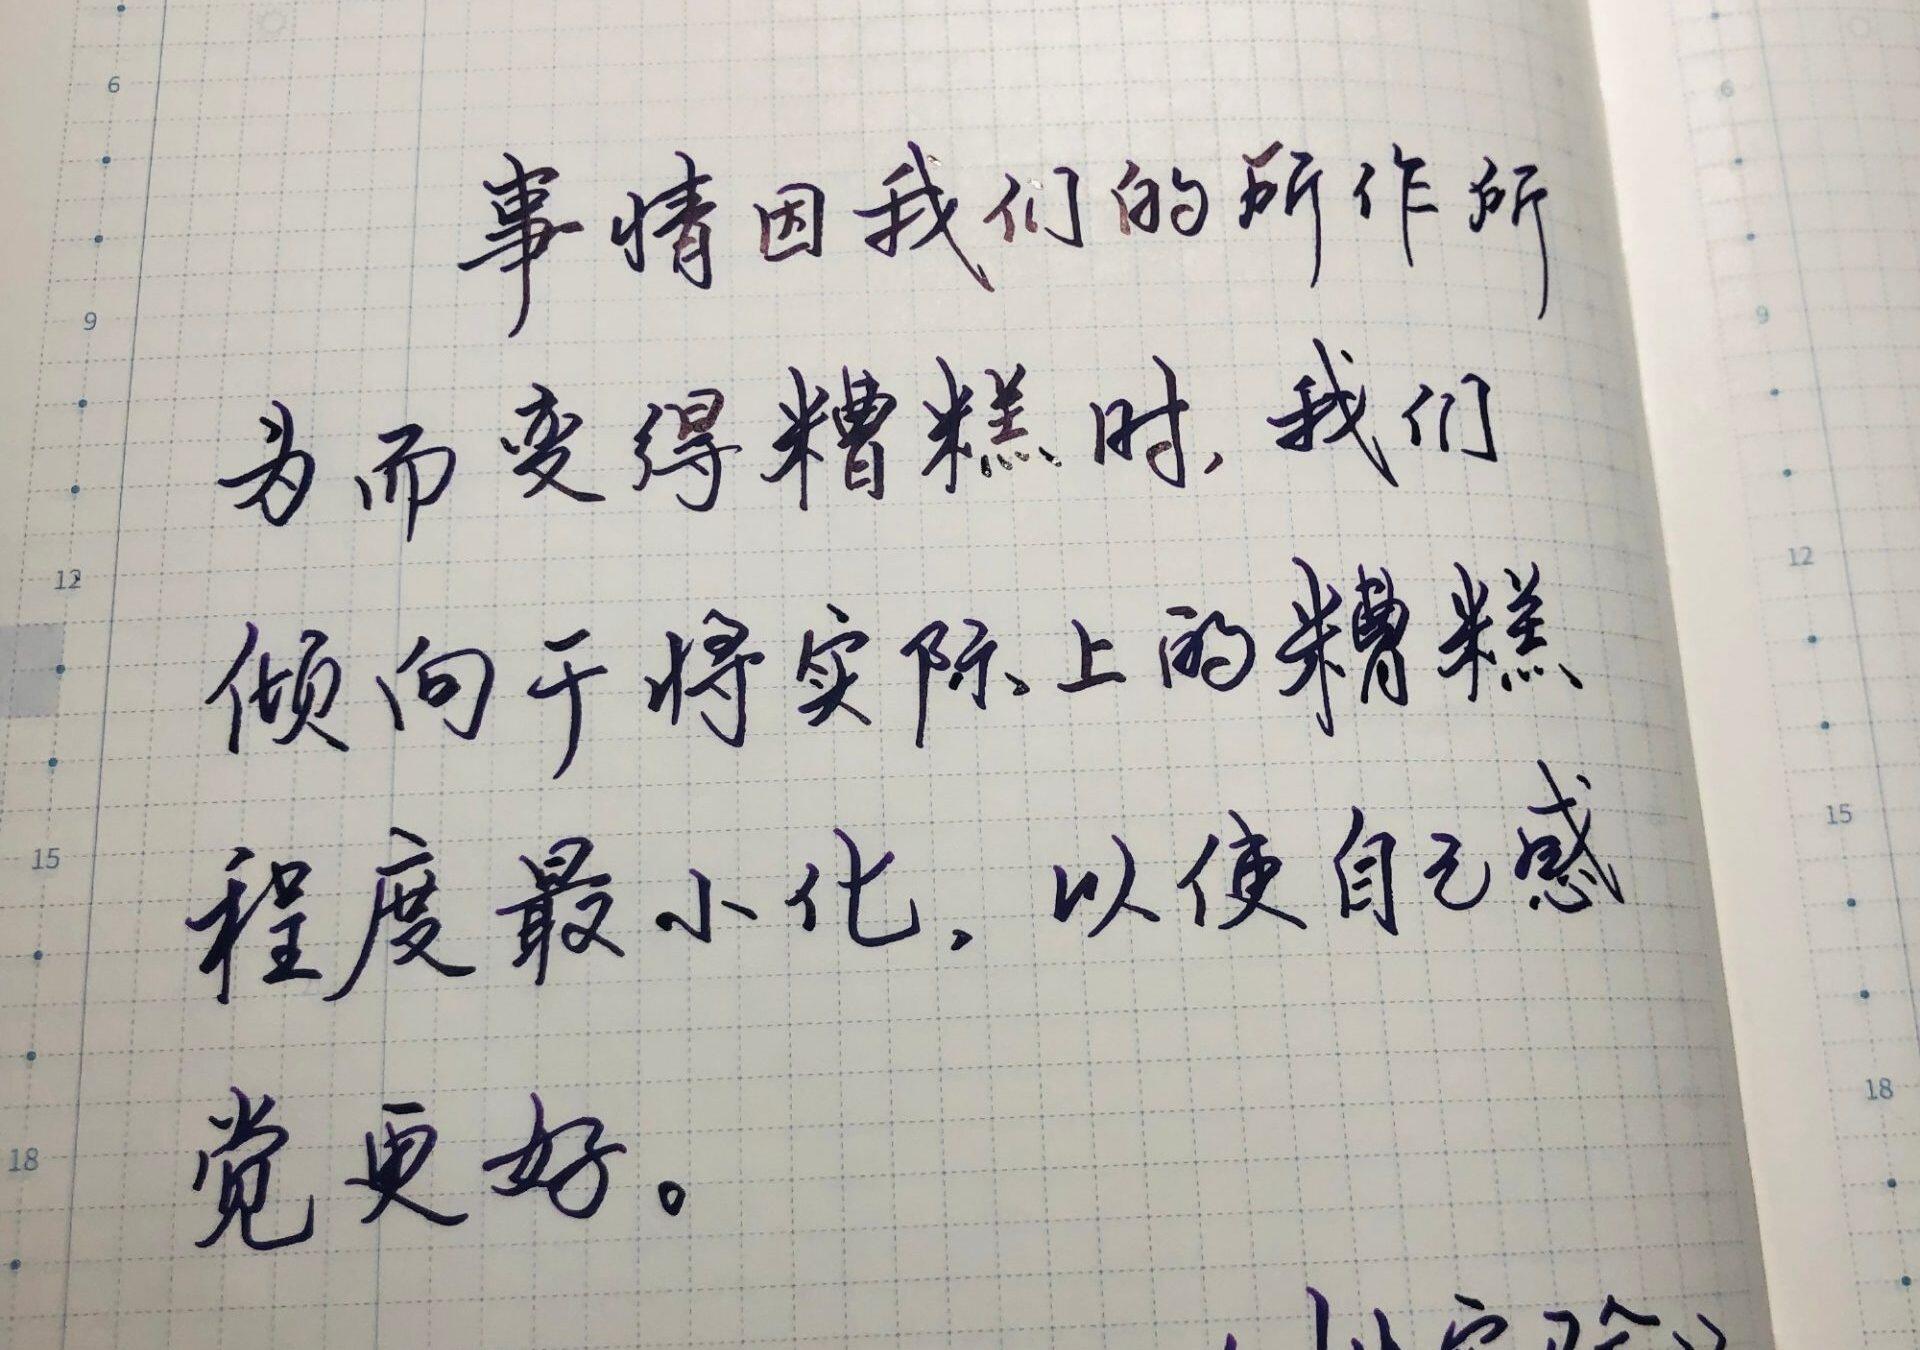 6
6
事情因我们的所作所
9
9
为而变得糟糕时,我们
12
12
倾向于将实际上的糟糕
15
15
程度最小化,以使自己感
18
18
觉更好。